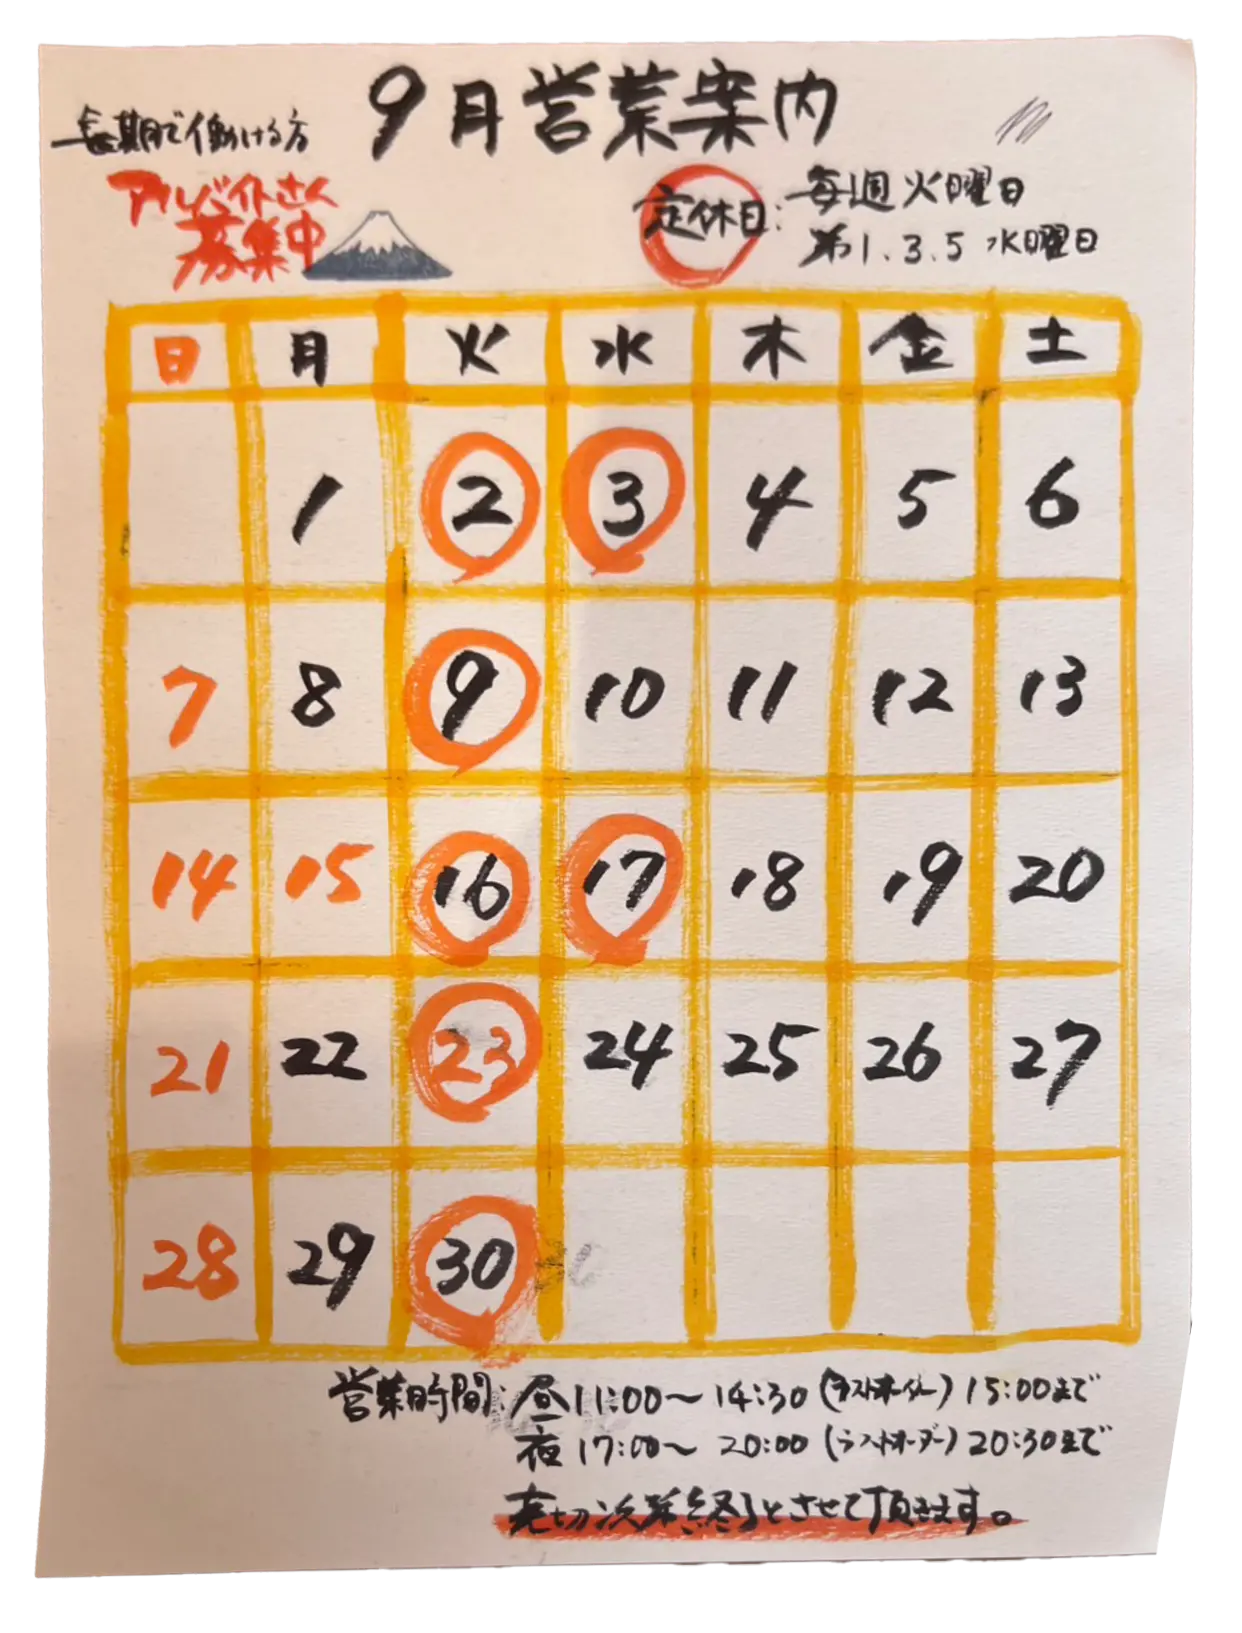 9月営業案内
長期で働ける方
アルバイトさん
募集中
定休日: 毎週火曜日
第1.3.5 水曜日
日 月 火 水 木 金 土
1 2 3 4 5 6
7 8 9 10 11 12 13
14 15 16 17 18 19 20
21 22 23 24 25 26 27
28 29 30
営業時間: 昼 11:00〜14:30 (ラストオーダー) 15:00まで
夜 17:00〜20:00 (ラストオーダー) 20:30まで
売切次第終了とさせて頂きます。